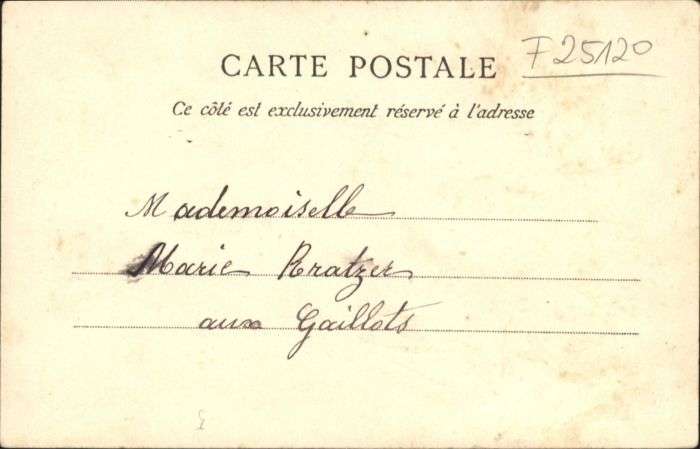 F 25120
CARTE POSTALE
Ce côté est exclusivement réservé à l'adresse
Mademoiselle
Marie Kratzer
aux Gaillots